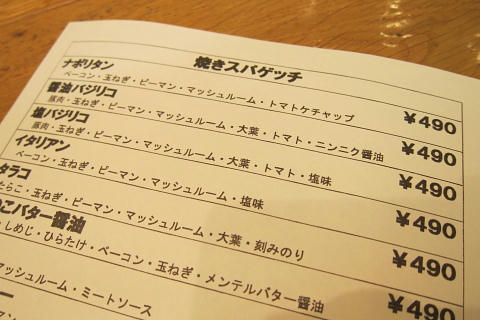 焼きスパゲッチ
ナポリタン
ベーコン・玉ねぎ・ピーマン・マッシュルーム・トマトケチャップ ¥490
醤油バジリコ
豚肉・玉ねぎ・ピーマン・マッシュルーム・大葉・トマト・ニンニク醤油 ¥490
塩バジリコ
豚肉・玉ねぎ・ピーマン・マッシュルーム・大葉・トマト・塩味 ¥490
イタリアン
ベーコン・玉ねぎ・ピーマン・マッシュルーム・塩味 ¥490
タラコ
たらこ・玉ねぎ・ピーマン・マッシュルーム・大葉・刻みのり ¥490
こバター醤油
しめじ・ひらたけ・ベーコン・玉ねぎ・メンテルバター醤油 ¥490
マッシュルーム・ミートソース